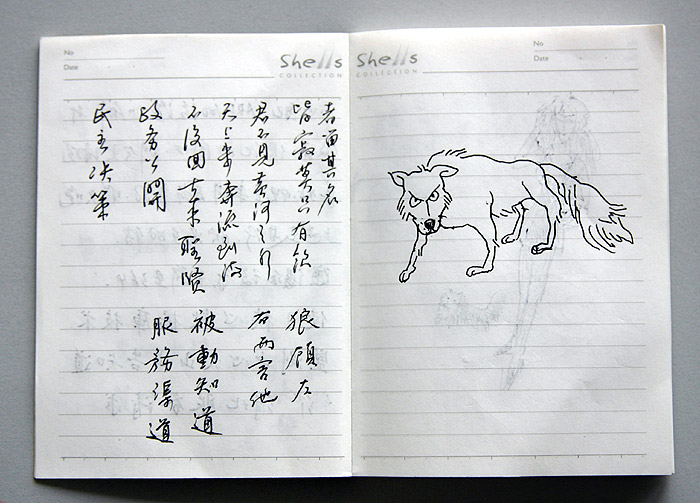 No
Date
Shells
COLLECTION
者留其名
皆寂莫只有飲
君不見黄河之水
天上来奔流到海
不復回古来聖賢
政务公開
民主决策
狼顾左
右而言他
被動知道
服務渠道
Shells
COLLECTION
No
Date